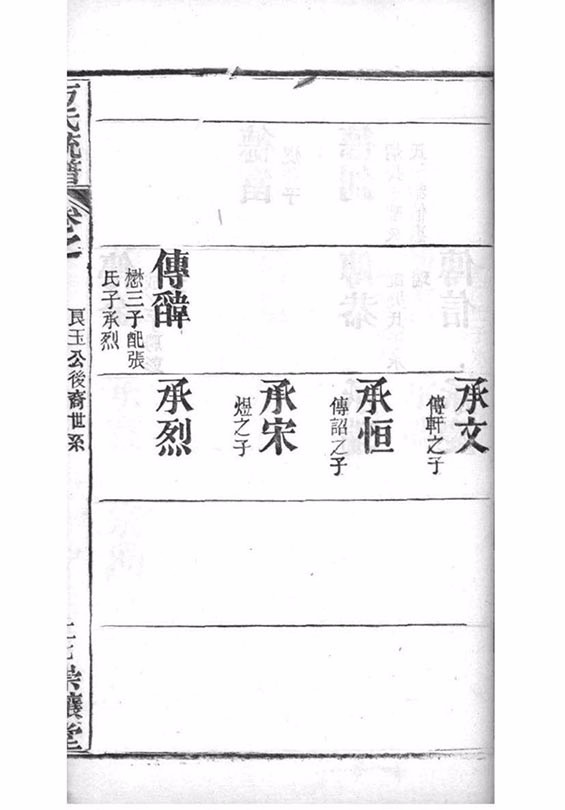 承文
傳軒之子
承恒
傳詔之子
承宋
煜之子
傳
懋三子配張
氏子承烈
承烈
氏統譜
卷之
良玉公後裔世系
崇讓堂